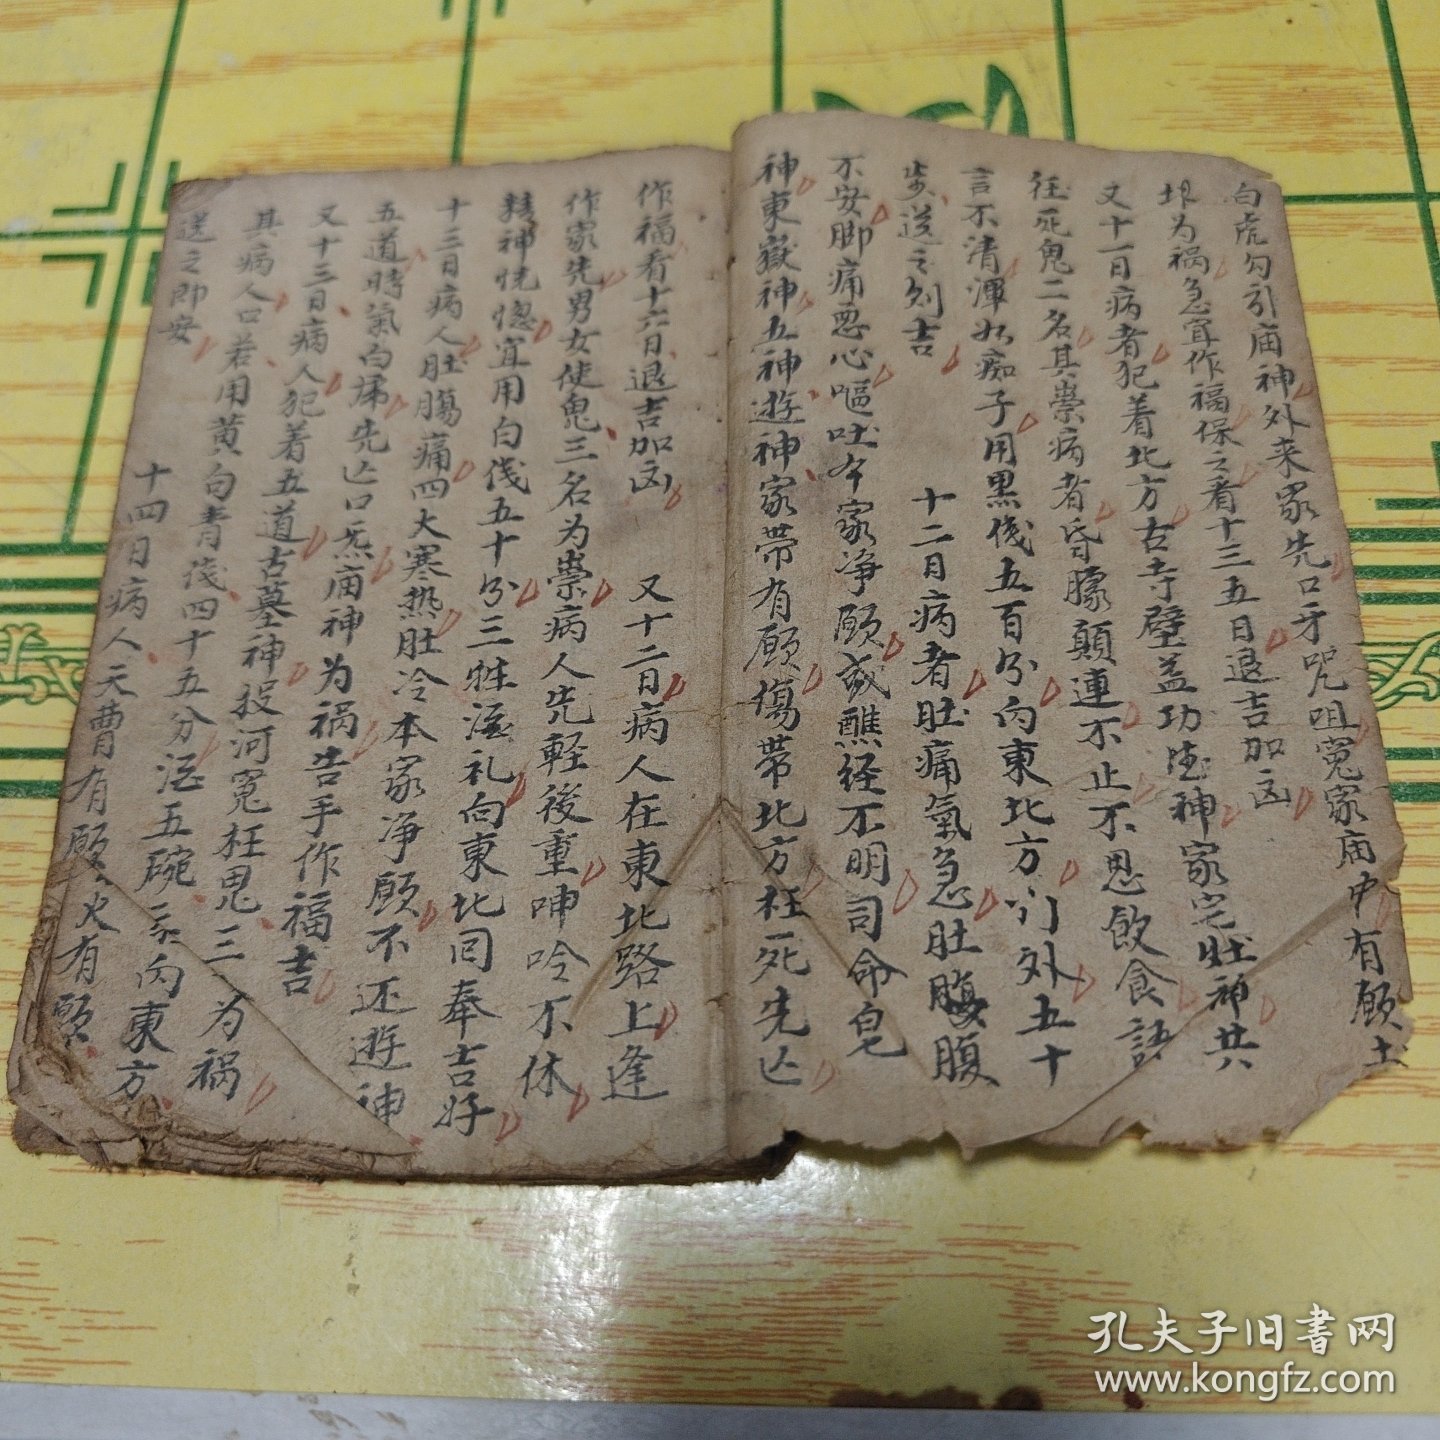 白虎勾引庙神外来家先口牙咒咀冤家庙中有愿土
坭为祸急宜作福保之看十三五日退吉加凶
又十一日病者犯着北方古寺壁益功德神家宅灶神共
往死鬼二名其祟病者昏朦顛連不止不思飲食語
言不清渾如痴子用黑伐五百分向東北方门外五十
步送之则吉
十二日病者肚痛氣急肚腹
不安脚痛恶心嘔吐本家净願或醮経不明司命皂
神東嶽神五神遊神家带有願傷带北方枉死先亡
作福看十六日退吉加凶
又十二日病人在東北路上逢
作家先男女使鬼三名为祟病人先軽後重呻吟不休
精神恍惚宜用白伐五十分三牲酒礼向東北回奉吉好
十三日病人肚腸痛四大寒热肚冷本家净願不还遊神
五道時氣白虎先亡口炁庙神为祸告手作福吉
又十三日病人犯着五道古墓神投河冤枉鬼三为祸
其病人口若用黄白青伐四十五分酒五碗 向東方
送之即安
十四日病人天曹有願火有願